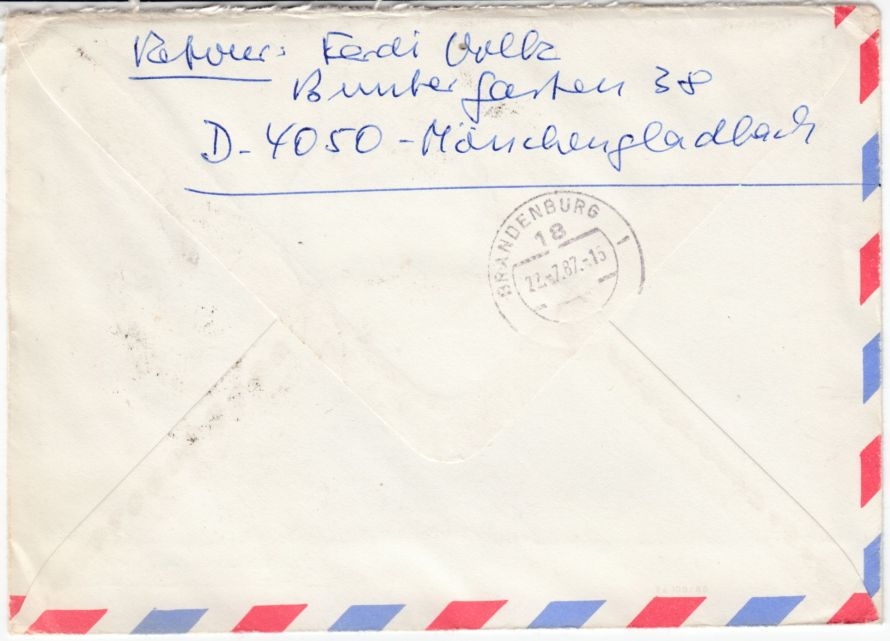 Retour: Ferdi Volk
Buntergarten 38
D-4050-Mönchengladbach
BRANDENBURG
18
22.-7.87.-15